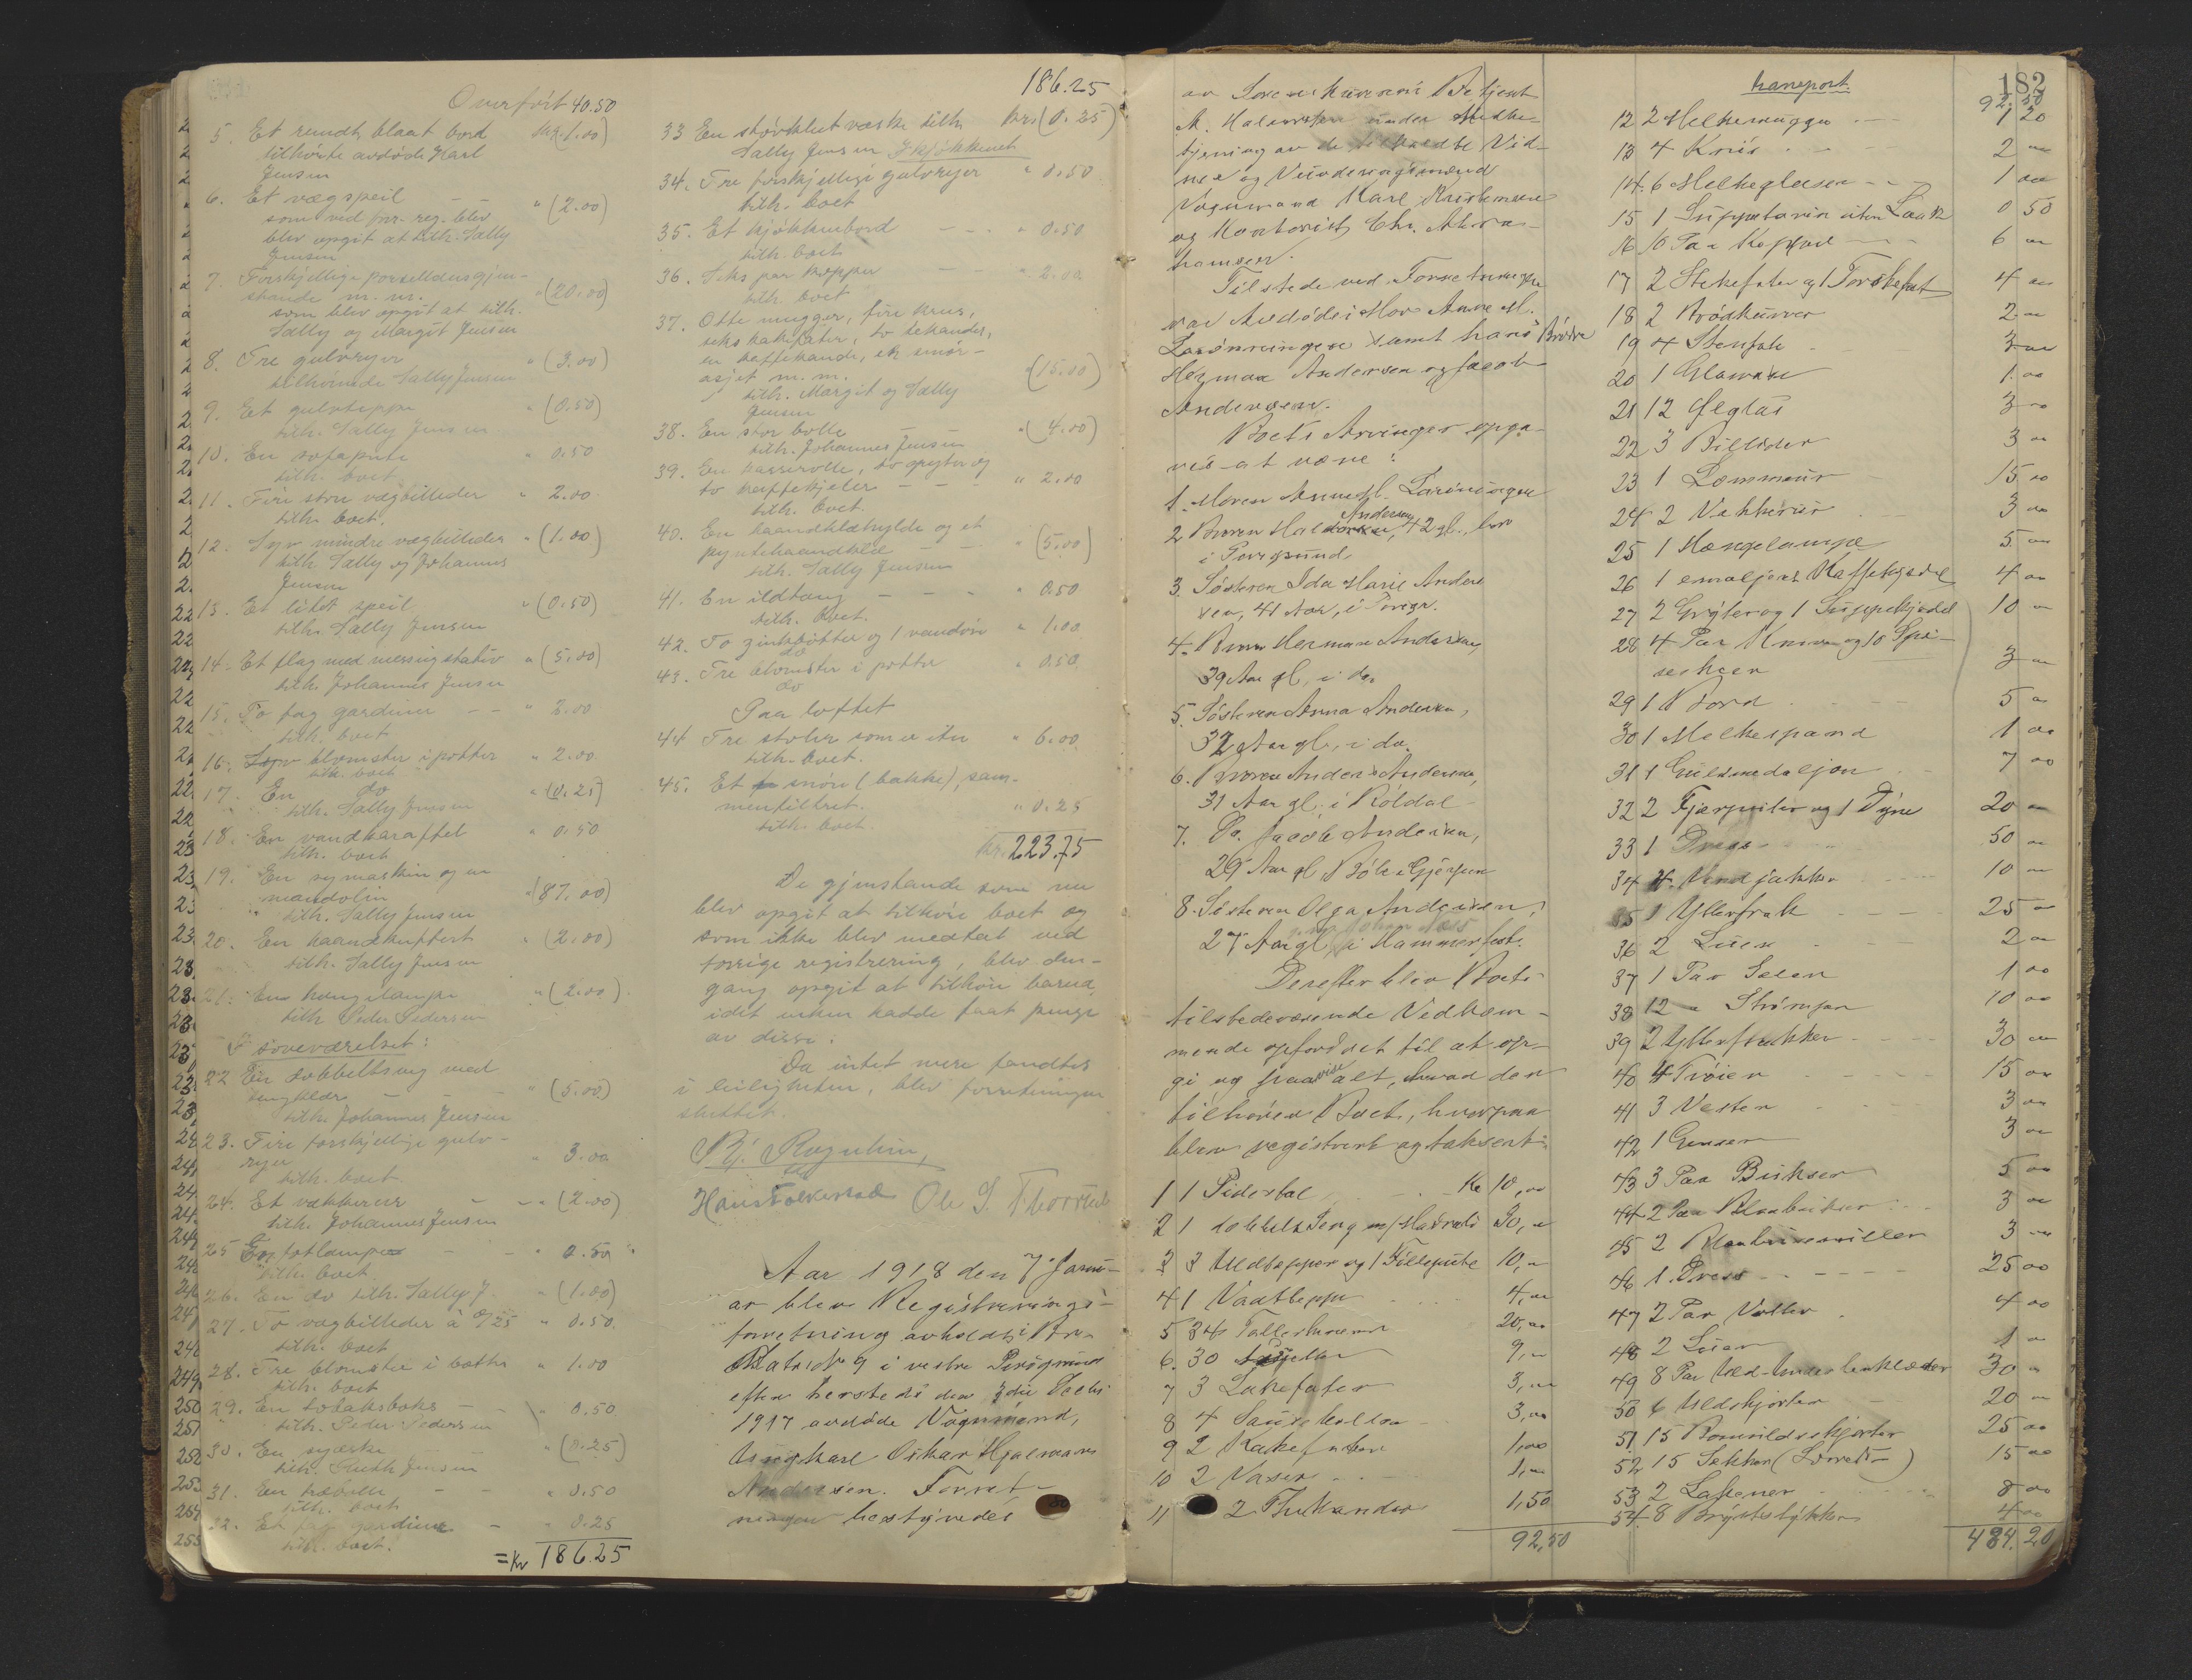 Overført 40.50
5. Et rundt blaat bord kr. (1.00)
tilhørte avdøde Karl
Jensen
6. Et vægspeil " (2.00)
som ved frr. reg. blev
blev opgit at tilh. Sally
Jensen
7. Forskjellige porselænsgjen-
stande m. m. " (20.00)
som blev opgit at tilh.
Sally og Margit Jensen
8. Tre gulvryer " (3.00)
tilhørende Sally Jensen
9. Et gulvteppe " (0.50)
tilh. Sally Jensen
10. En sofapute " 0.50
tilh. boet
11. Fire store vægbilleder " 2.00
tilh. boet.
12. Syv mindre vægbilleder " (1.00)
tilh. Sally og Johannes
Jensen
13. Et litet speil " (0.50)
tilh. Sally Jensen
14. Et flag med messingstativ " (5.00)
tilh. Johannes Jensen
15. To fag gardiner - - " 2.00
tilh. boet
16. Syv blomster i potter " 2.00
tilh. boet
17. En do " (0.25)
tilh. Sally Jensen
18. En vandkaraffel " 0.50
tilh. boet
19. En symaskin og en
mandolin " (87.00)
tilh. Sally Jensen
20. En haandkuffert " (2.00)
tilh. Sally Jensen
21. En hengelampe " (2.00)
tilh Peder Pedersen
I soveværelset:
22 En dobbeltseng med
sengklær " (5.00)
tilh. Johannes Jensen
23. Fire forskjellige gulv-
ryer " 3.00
tilh. boet
24. Et vækkerur - - " (2.00)
tilh. Johannes Jensen
25 En totlampe - - " 0.50
tilh. boet
26. En do tilh. Sally J. " (1.00)
27. To vægbilleder à 0/25 " 0.50
tilh. boet
28. Tre blomster i bøtter " 1.00
tilh. boet
29. En tobaksboks - " 0.50
tilh. Peder Pedersen
30. En syæske " (0.25)
tilh. Ruth Jensen
31. En træbolle - - " 0.50
tilh. boet
32. Et fag gardiner - " 0.25
tilh. boet.
= Kr 186.25
186.25
33 En størklut væske tilh kr. (0.25)
Sally Jensen I kjøkkenet
34. Tre forskjellige gulvryer " 0.50
tilh. boet
35. Et kjøkkenbord - - - " 0.50
tilh. boet
36. Seks par kopper - - " 2.00
tilh. boet
37. Otte mugger, fire krus,
seks kakefater, to tekander,
en kaffekande, et smør-
asjet m. m. " (15.00)
tilh. Margit og Sally
Jensen
38. En stor bolle - " (4.00)
tilh. Johannes Jensen
39. En kasserolle, to gryter og
to kaffekjeler - - - " 2.00
tilh. boet.
40. En haandklæhylde og et
pyntehaandklæ - - " (5.00)
tilh. Sally Jensen
41. En ildtang - - - " 0.50
tilh. boet.
42. To zinkbøtter og 1 vandøse " 1.00
do
43. Tre blomster i potter " 0.50
do
Paa loftet
44 Tre stoler som er itu " 6.00
tilh. boet.
45. Et smøre (bakke), sam-
mentiltret. " 0.25
tilh. boet.
kr. 223.75
De gjenstande som nu
blev opgit at tilhøre boet og
som ikke blev medtat ved
forrige registrering, blev den-
gang opgit at tilhøre barna,
idet enken hadde faat penge
av disse.
Da intet mere fandtes
i leiligheten, blev forretningen
sluttet.
Hans Folkestad Ole S. Thorsen
Aar 1918 den 7 Janu-
ar blev Registrerings-
forretning avholdt i Bre-
Matr. No 9 i vestre Porsgrund
efter hersteds den 3die Decbr
1917 avdøde Vognmand,
Ungkarl Oskar Hjalmar
Andersen. Forret-
ningen bestyredes
182
av Sorenskriverens Betjent
M. Halvorsen under Medbe-
tjening av de tilkaldte Vid-
ner og Vurderingsmænd
Vognmand Karl Kristensen
og Kontorist Chr. Abra-
hamsen.
Tilstede ved Forretningen
var Avdødes Mor Anne M.
Lauenningen samt hans Brødre
Herman Andersen og Jacob
Andersen.
Boets Arvinger opga-
ves at være:
1. Moren Anne M. Lauenningen
2 Broren Halvor Andersen, 42 gl., bor
i Porsgrund
3. Søsteren Ida Marie Ander-
sen, 41 Aar, i Porsgr.
4. Broren Herman Andersen,
39 Aar gl., i do.
5. Søsteren Anna Andersen,
32 Aar gl., i do.
6. Broren Anders Andersen,
31 Aar gl. i Røldal
7. Do. Jacob Andersen,
29 Aar gl. Bøle i Gjerpen
8. Søsteren Olga Andersen,
27 Aar gl. i Hammerfest.
Derefter blev Boets
tilstedeværende Vedkom-
mende opfordret til at op-
gi og paavise alt, hvad der
tilhører Boet, hvorpaa
blev registrert og taksert:
1 1 Piderstal Kr 10,00
2 1 dobbelt Seng m/ Madrads 30,"
3 3 Uldtepper og 1 Fillepute 10,"
4 1 Vattteppe 4,00
5 34 Tallerkener 20,00
6. 30 Asjetter 9,"
7 3 Lakefater 3,"
8 4 Sauseboller 3,00
9 2 Kakefater 1,00
10 2 Vaser 1,"
11 2 Thekander 1,50
92,50
transport 92.50
12 2 Melkemugger 1 20
13 4 Krus 2 "
14. 6 Melkeglasser 1 00
15 1 Suppeterrin uten Laak 0 50
16 10 Par Kopper 6 "
17 2 Stekefater og 1 Torskefat 4 "
18 2 Brødkurver 2 "
19 4 Stenfate 3 "
20 1 Glasvase 1.00
21 12 Ølglas 3 "
22 3 Billeder 3 "
23 1 Lommeur 15 00
24 2 Vækkerur 3 00
25 1 Hængelampe 5. "
26 1 emaljert Kaffekjedel 4 00
27 2 Gryter og 1 Suppekjedel 10 "
28 4 Par Kniver og 10 Spi-
seskeer 3 "
29 1 Bord 5 "
30 1 Melkespand 1 00
31 1 Guldmedaljon 7 00
32 2 Fjærputer og 1 Dyne 20 "
33 1 Dress 50 "
34 4. Vendjakker 10 "
35 1 Ytterfrak 25 "
36 2 Luer 2 "
37 1 Par Seler 1 00
38 12 " Strømper 10 00
39 2 Ytterfrakker 30 "
40 4 Trøier 15 "
41 3 Vester 3 "
42 1 Genser 3 "
43 3 Par Bukser 5 00
44 2 Par Blaabukser 3 "
45 2 Blaabuser 3 "
46 1. Dress 25 00
47 2 Par Votter 4 00
48 2 Luer 1 "
49 8 Par Uld-Underbenklæder 30 "
50 6 Uldskjorter 20 "
51 15 Bomuldsskjorter 25 00
52 15 Sekker (Lerreds-) 15 00
53 2 Lakener 8 00
54 8 Bryststykker 4 00
484.20